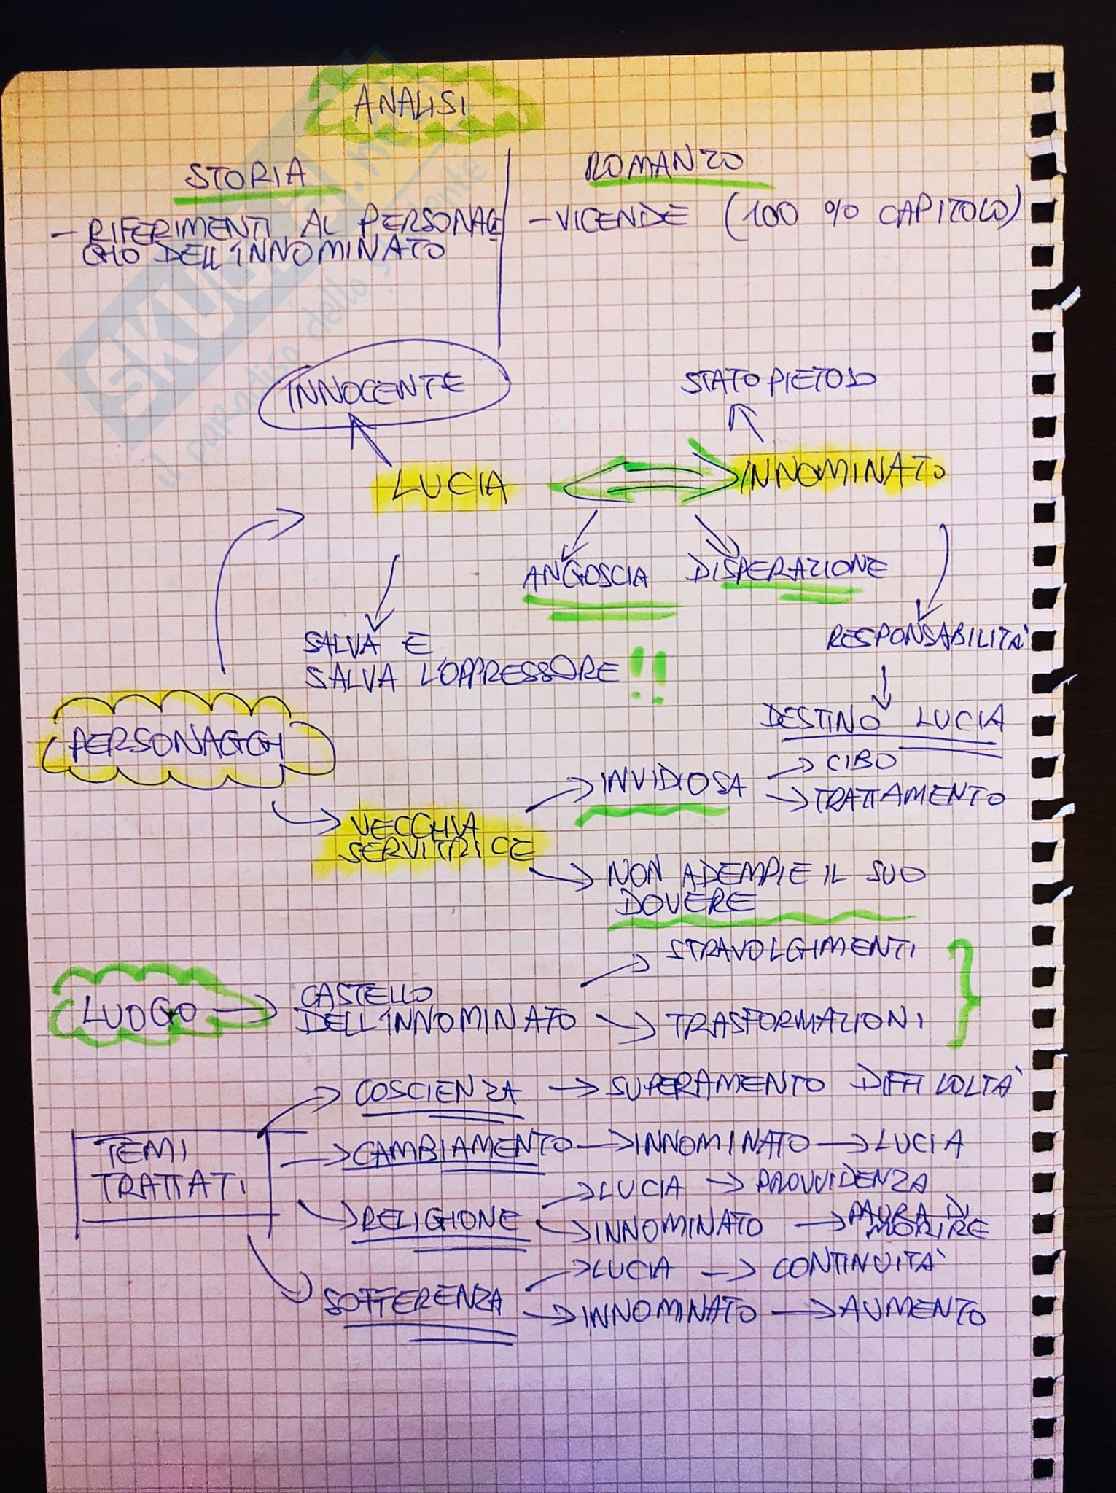 ANALISI
STORIA
ROMANZO
- RIFERIMENTI AL PERSONAG
GIO DELL'INNOMINATO
- VICENDE (100 % CAPITOLO)
INNOCENTE
STATO PIETOSO
LUCIA
INNOMINATO
ANGOSCIA
DISPERAZIONE
SALVA E
SALVA L'OPPRESSORE !!
RESPONSABILITÀ
DESTINO LUCIA
PERSONAGGI
INVIDIOSA
CIBO
TRATTAMENTO
VECCHIA
SERVITRICE
NON ADEMPIE IL SUO
DOVERE
STRAVOLGIMENTI
LUOGO
CASTELLO
DELL'INNOMINATO
TRASFORMAZIONI
COSCIENZA → SUPERAMENTO DIFFICOLTÀ
TEMI
TRATTATI
CAMBIAMENTO → INNOMINATO → LUCIA
LUCIA → PROVVIDENZA
RELIGIONE
INNOMINATO → PAURA DI
MORIRE
LUCIA → CONTINUITÀ
SOFFERENZA
INNOMINATO → AUMENTO
SKUOLA.net
il paradiso dello studente